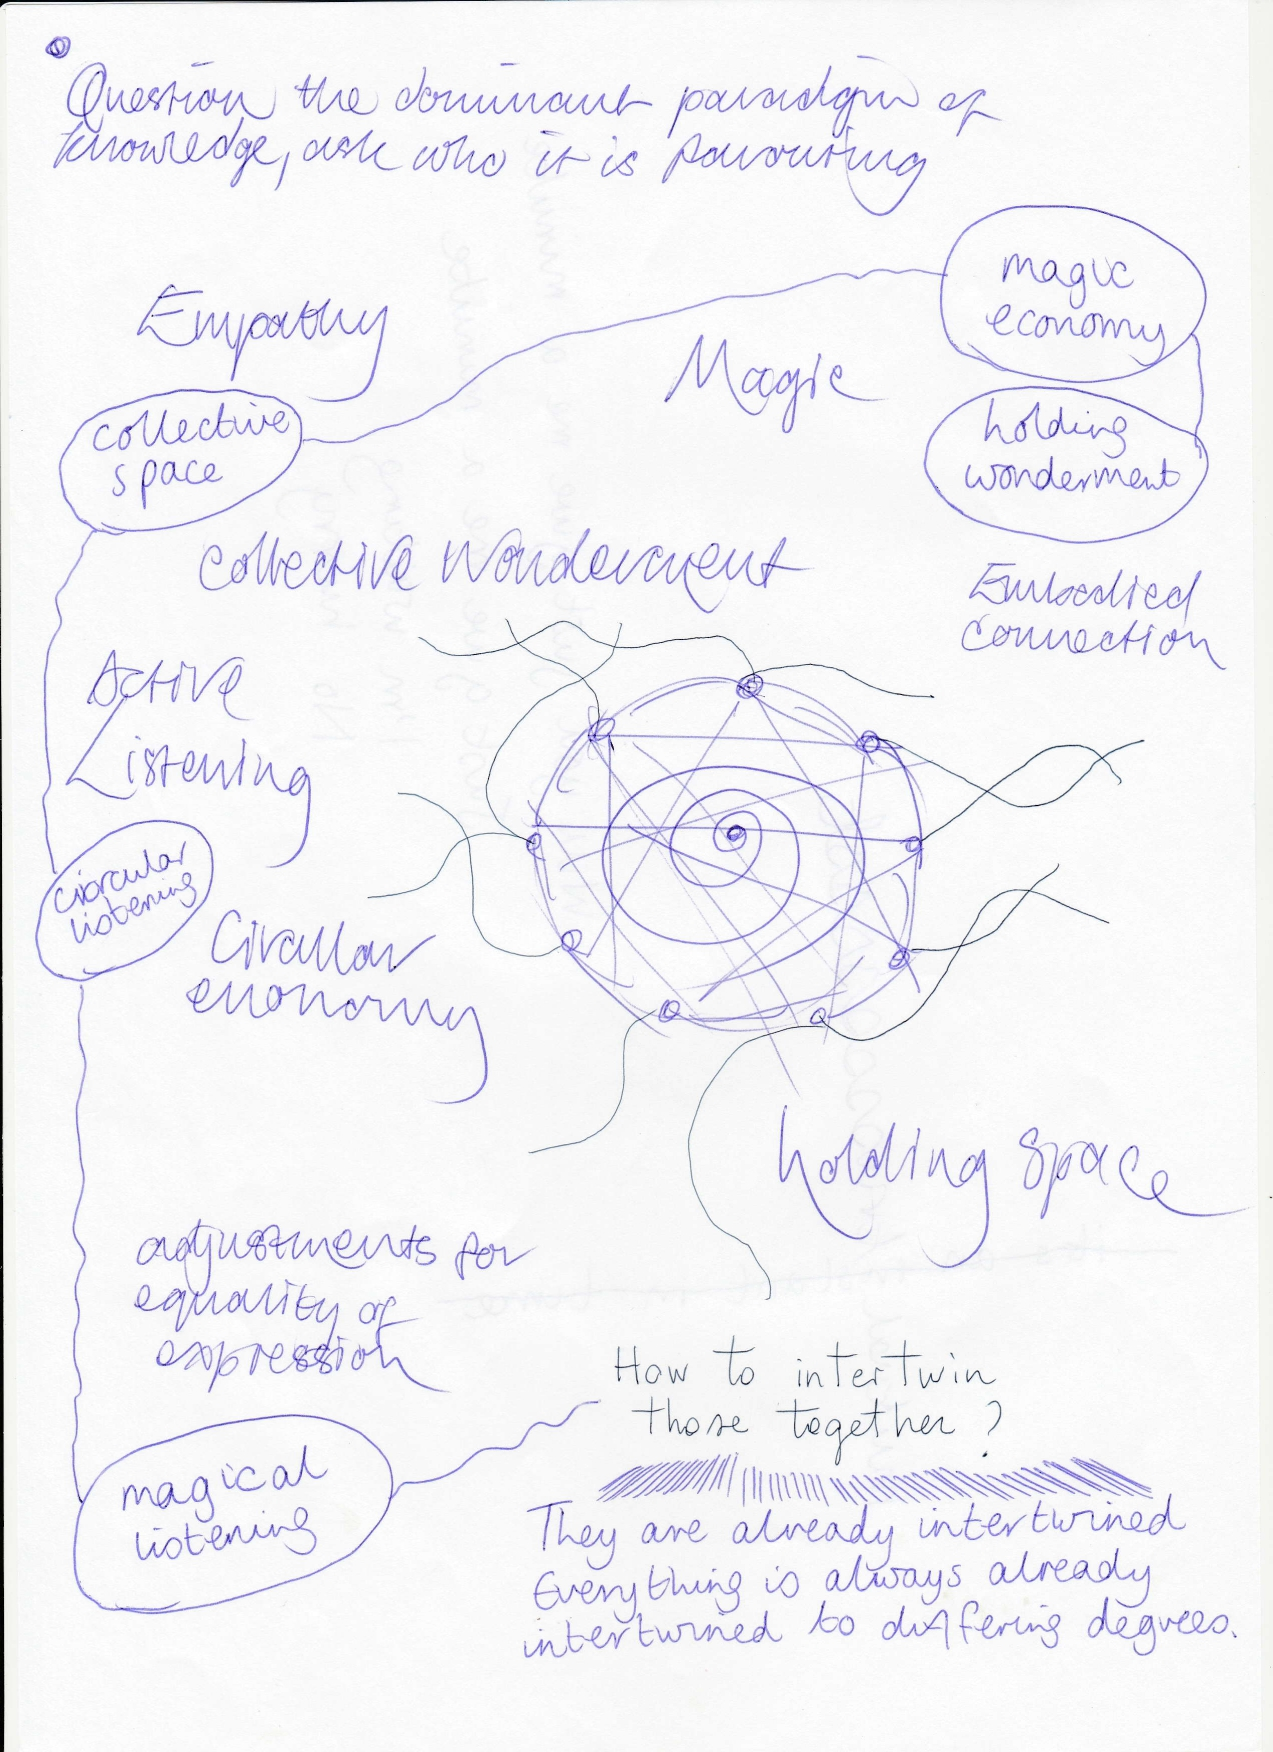 Question the dominant paradigm of
knowledge, ask who it is favouring
magic
economy
Empathy
Magic
collective
space
holding
wonderment
Collective Wonderment
Embodied
Connection
Active
Listening
circular
listening
Circular
economy
holding space
adjustments for
equality of
expression
How to intertwin
those together?
magical
listening
They are already intertwined
Everything is always already
intertwined to differing degrees.